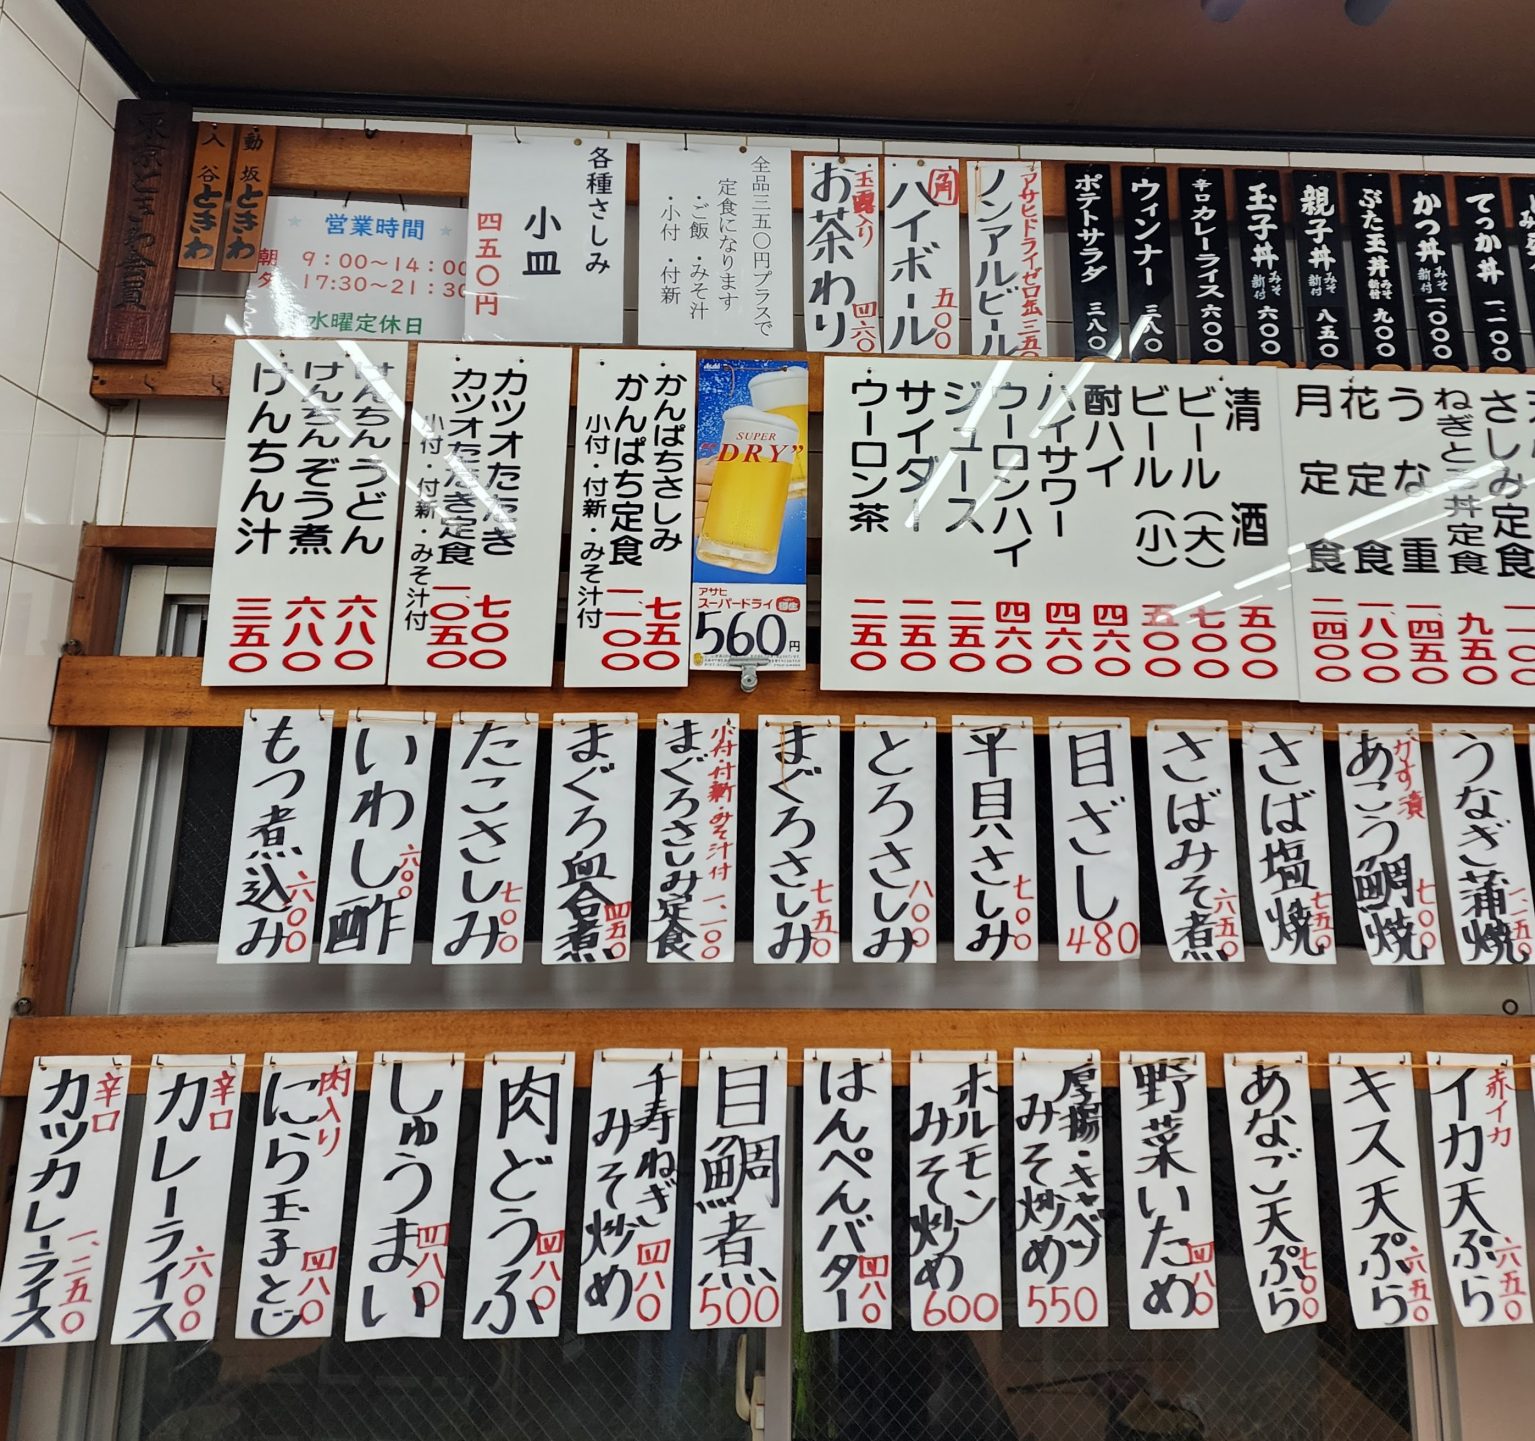 東京ときわ会員
入谷ときわ
動坂ときわ
営業時間
朝 9:00〜14:00
夕 17:30〜21:30
水曜定休日
各種さしみ
小皿
四五〇円
全品三五〇円プラスで
定食になります
・ご飯 ・みそ汁
・小付 ・付新
玉露入り
お茶わり 四六〇
角
ハイボール 五〇〇
アサヒドライゼロ缶 三五〇
ノンアルビール
ポテトサラダ 三八〇
ウィンナー 三八〇
辛口カレーライス 六〇〇
玉子丼 みそ新付 六〇〇
親子丼 みそ新付 八五〇
ぶた玉丼 みそ新付 九〇〇
かつ丼 みそ新付 一〇〇〇
てっか丼 一、一〇〇
けんちんうどん 六八〇
けんちんぞう煮 六八〇
けんちん汁 三五〇
カツオたたき 七〇〇
カツオたたき定食 一、〇五〇
小付・付新・みそ汁付
かんぱちさしみ 七五〇
かんぱち定食 一、一〇〇
小付・付新・みそ汁付
Asahi
SUPER
"DRY"
アサヒ
スーパードライ 樽生
560円
清酒 五〇〇
ビール(大) 七〇〇
ビール(小) 五〇〇
酎ハイ 四六〇
ハイサワー 四六〇
ウーロンハイ 四六〇
ジュース 二五〇
サイダー 二五〇
ウーロン茶 二五〇
さしみ定食
ねぎとろ丼定食 九五〇
うな重 一、四五〇
花定食 一、八〇〇
月定食 二、四〇〇
もつ煮込み 六〇〇
いわし酢 六〇〇
たこさしみ 七〇〇
まぐろ血合煮 四五〇
小付・付新・みそ汁付
まぐろさしみ定食 一、一〇〇
まぐろさしみ 七五〇
とろさしみ 八〇〇
平貝さしみ 七〇〇
目ざし 480
さばみそ煮 六五〇
さば塩焼 七五〇
かす漬
あこう鯛焼 七〇〇
うなぎ蒲焼 一、一五〇
辛口
カツカレーライス 一、二五〇
辛口
カレーライス 六〇〇
肉入り
にら玉子とじ 四八〇
しゅうまい 四八〇
肉どうふ 四八〇
千寿ねぎ
みそ炒め 四八〇
目鯛煮 500
はんぺんバター 四八〇
ホルモン
みそ炒め 600
厚揚・キャベツ
みそ炒め 550
野菜いため 四八〇
あなご天ぷら 七〇〇
キス天ぷら 六五〇
赤イカ
イカ天ぷら 六五〇